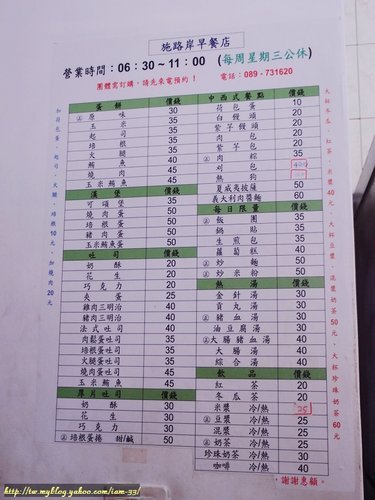 施路岸早餐店
營業時間：06：30～11：00 (每周星期三公休)
團體需訂購，請先來電預約！ 電話：089-731620
蛋餅 價錢
原味 30
玉米 35
起司 35
培根 35
火腿 35
鮪魚 40
燒肉 45
玉米鮪魚 45
漢堡 價錢
可頌堡 35
燒肉蛋 50
培根蛋 50
豬肉蛋 50
玉米鮪魚蛋 50
吐司 價錢
奶酥 20
花生 20
巧克力 20
夾蛋 25
雞肉三明治 40
豬肉三明治 40
法式吐司 40
肉鬆蛋吐司 35
培根蛋吐司 35
火腿蛋吐司 35
燒肉蛋吐司 45
玉米鮪魚 45
厚片吐司 價錢
奶酥 30
花生 30
巧克力 30
培根蛋捲 甜/鹹 50
中西式餐點 價錢
荷包蛋 10
白饅頭 20
芋仔饅頭 20
肉包 20
芋仔包 20
肉粽 35
刈包
熱狗
夏威夷披薩 50
義大利肉醬麵 60
每日限量 價錢
飯糰 35
鍋貼 35
生煎包 35
蘿蔔糕 40
炒麵 50
炒米粉 50
熱湯 價錢
金針湯 30
貢丸湯 30
豬血湯 30
油豆腐湯 30
大腸豬血湯 40
大腸湯 40
綜合湯 40
飲品 價錢
紅茶 20
冬瓜茶 20
米漿 冷/熱 25
豆漿 冷/熱 25
混漿 冷/熱 25
奶茶 冷/熱 30
珍珠奶茶 冷/熱 30
咖啡 冷/熱 40
加荷包蛋、起司、火腿、培根10元、加燒肉20元
大杯冬瓜、紅茶、米漿40元、大杯豆漿、混漿奶茶50元、大杯珍珠奶茶60元
謝謝惠顧。
http://tw.myblog.yahoo.com/iam-33/